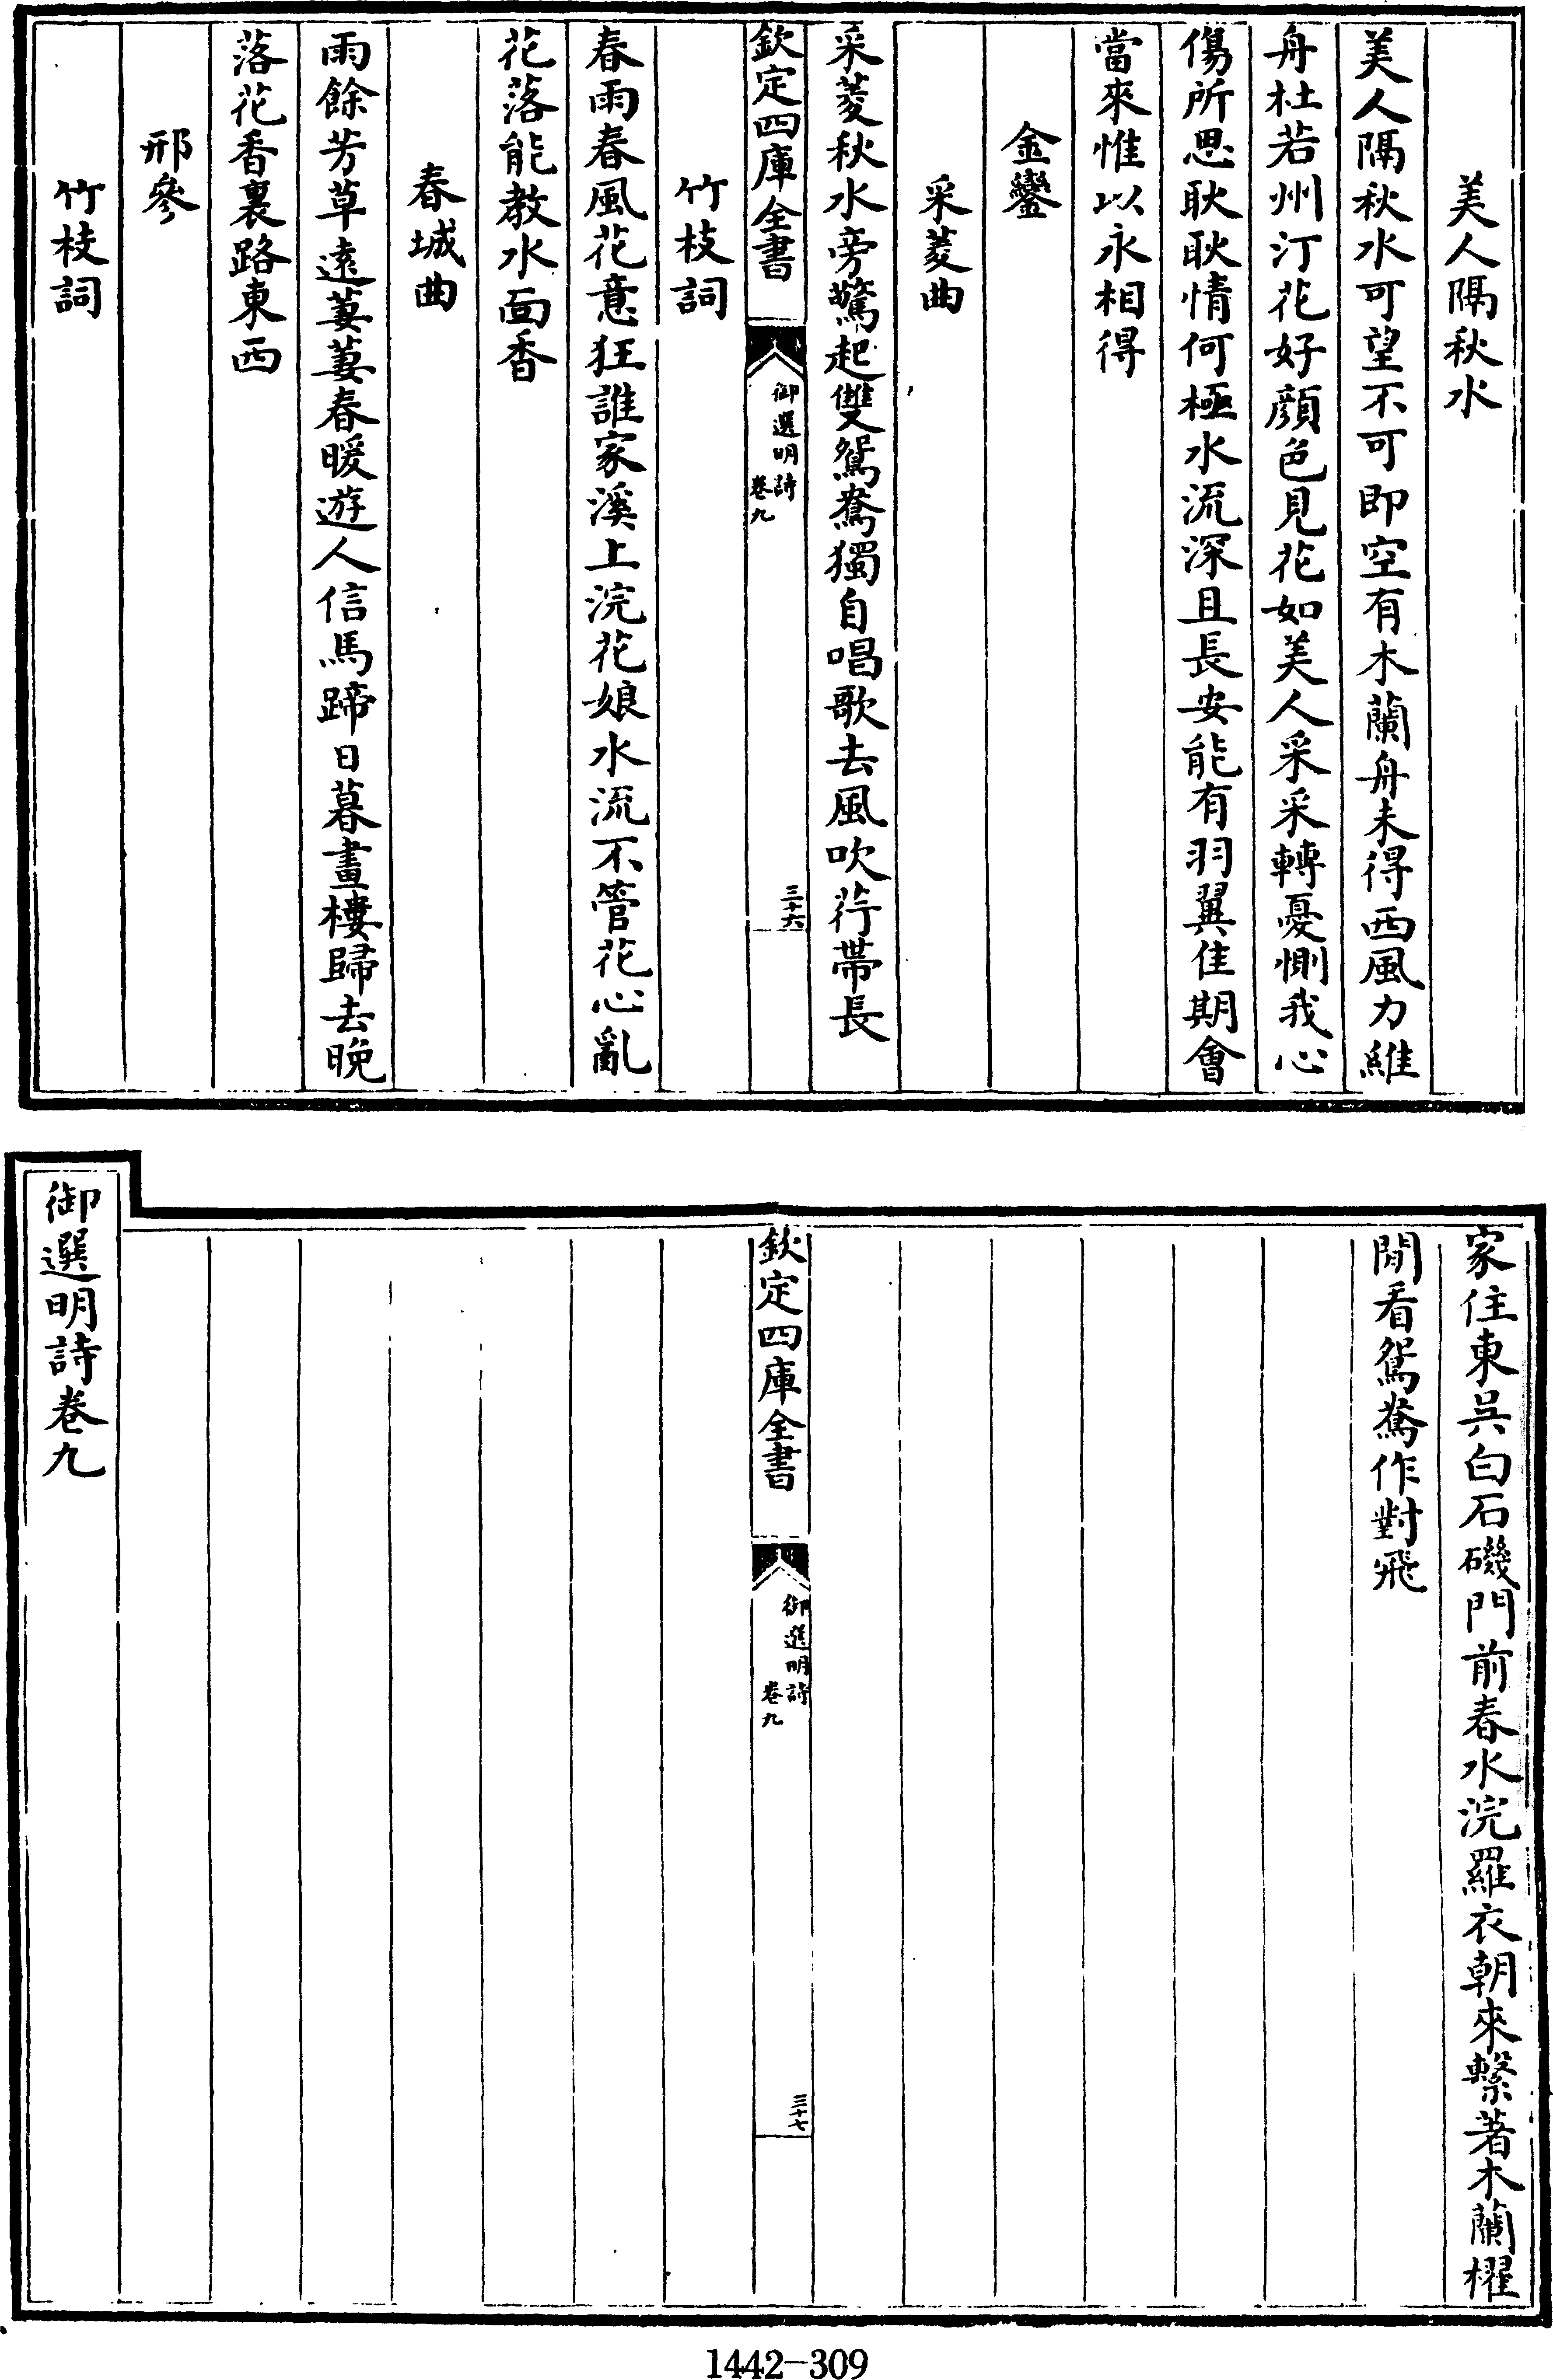 美人隔秋水
美人隔秋水可望不可即空有木蘭舟未得西風力維
舟杜若州汀花好顔色見花如美人采采轉憂惻我心
傷所思耿耿情何極水流深且長安能有羽翼佳期會
當來惟以永相得
金鑾
采菱曲
采菱秋水旁驚起雙鴛鴦獨自唱歌去風吹荇帶長
欽定四庫全書
御選明詩
卷九
三十六
竹枝詞
春雨春風花意狂誰家溪上浣花娘水流不管花心亂
花落能教水面香
春城曲
雨餘芳草遠萋萋春暖遊人信馬蹄日暮畫樓歸去晚
落花香裏路東西
邢參
竹枝詞
家住東吳白石磯門前春水浣羅衣朝來繫著木蘭櫂
閒看鴛鴦作對飛
欽定四庫全書
御選明詩
卷九
三十七
御選明詩卷九
1442-309